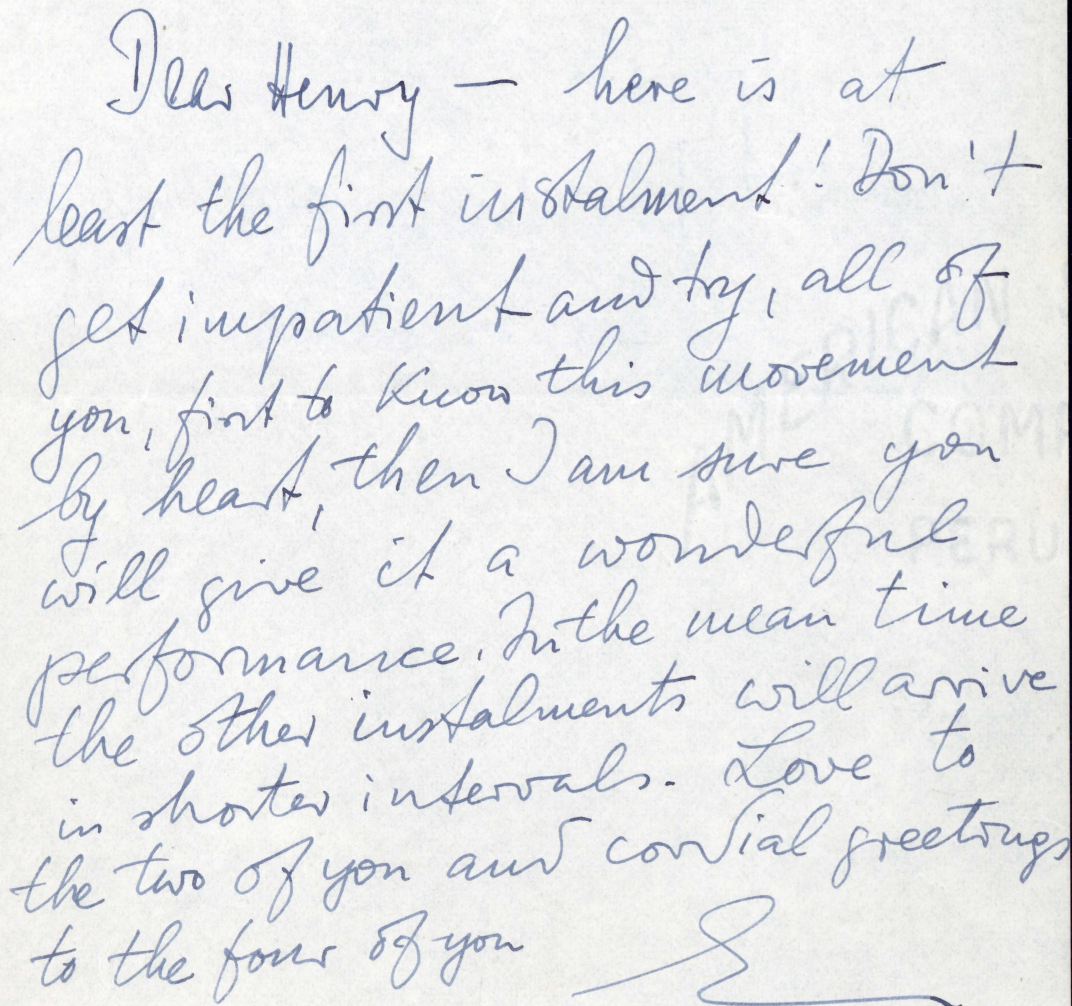 Dear Henry — here is at
least the first instalment! Don't
get impatient and try, all of
you, first to know this movement
by heart, then I am sure you
will give it a wonderful
performance. In the mean time
the other instalments will arrive
in shorter intervals. Love to
the two of you and cordial greetings
to the four of you